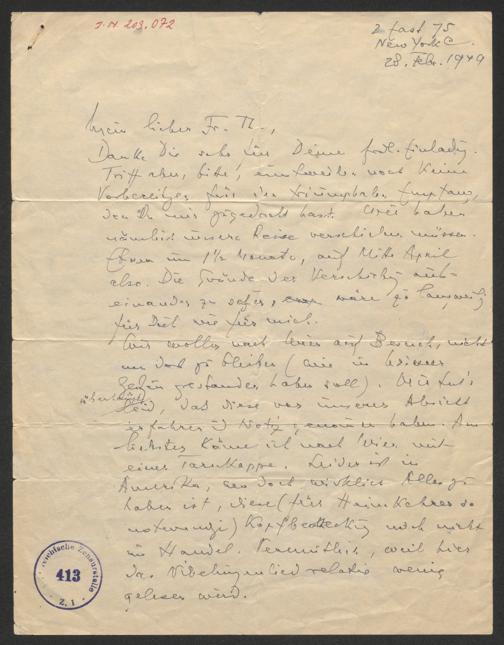 J.N. 203.072
2 East 75
New York C.
28. Febr. 1949
Mein lieber Fr. Th.,
Danke Dir sehr für Deine frdl. Einladg.
Triff aber, bitte, einstweilen noch keine
Vorbereitgen für den triumphalen Empfang,
den Du mir zugedacht hast. Wir haben
nämlich unsere Reise verschieben müssen.
Etwa um 1½ Monate, auf Mitte April
also. Die Gründe der Verschiebg aus-
einander zu setzen, wäre so langweilig
für Dich wie für mich.
Wir wollen nach Wien auf Besuch, nicht
um dort zu bleiben (wie in Wiener
Zeitgen gestanden haben soll). Mir tut's
überhaupt leid, dass diese von unserer Absicht
erfahren u Notiz genommen haben. Am
liebsten käme ich nach Wien mit
einer Tarnkappe. Leider ist in
Amerika, wo doch wirklich Alles zu
haben ist, diese (für Heimkehrer so
notwendige) Kopfbedeckung noch nicht
im Handel. Vermutlich, weil hier
das Nibelungenlied relativ wenig
gelesen wird.
Zensurstelle
413
Z. 1